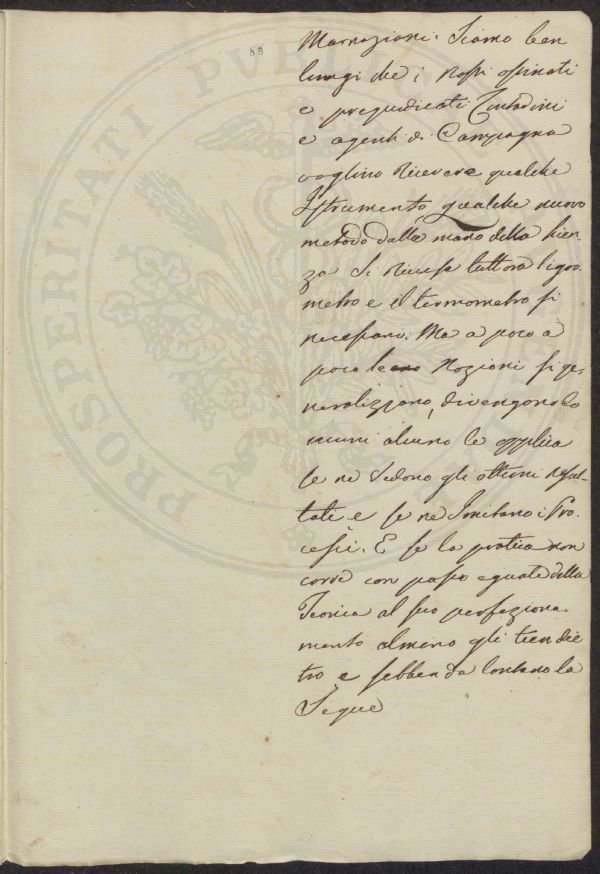 89
Marnazioni. Siamo ben
lungi che i nostri ostinati
e pregiudicati Contadini
e agenti di Campagna
voglino ricevere qualche
Istrumento qualche nuovo
metodo dalla mano della Scien
za Si ricusa tuttora l'igro
metro e il termometro si
necessari. Ma a poco a
poco le Nozioni si ge,
neralizzano, divengono co
muni alcuno le applica
se ne vedono gli ottimi resul-
tati e se ne Imitano i Pro
cessi. E se la pratica non
corre con passo eguale della
Teorica al suo perfeziona
mento almeno gli tien die
tro e sebben da lontano la
Segue
PROSPERITATI PVBLICAE